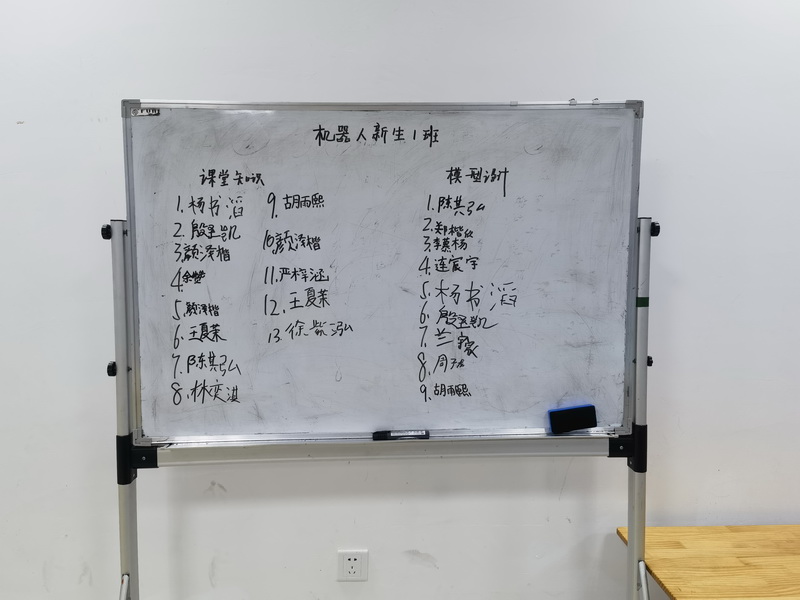 机器人新生1班
课堂知识
1.杨书滔
2.殷
3.颜泽楷
4.余
5.颜泽楷
6.王夏茉
7.陈其弘
8.林奕淇
9.胡雨熙
10.颜泽楷
11.严梓涵
12.王夏茉
13.徐紫泓
模型设计
1.陈其弘
2.郑楷
3.李慕杨
4.连宸宇
5.杨书滔
6.殷
7.兰
8.周子
9.胡雨熙